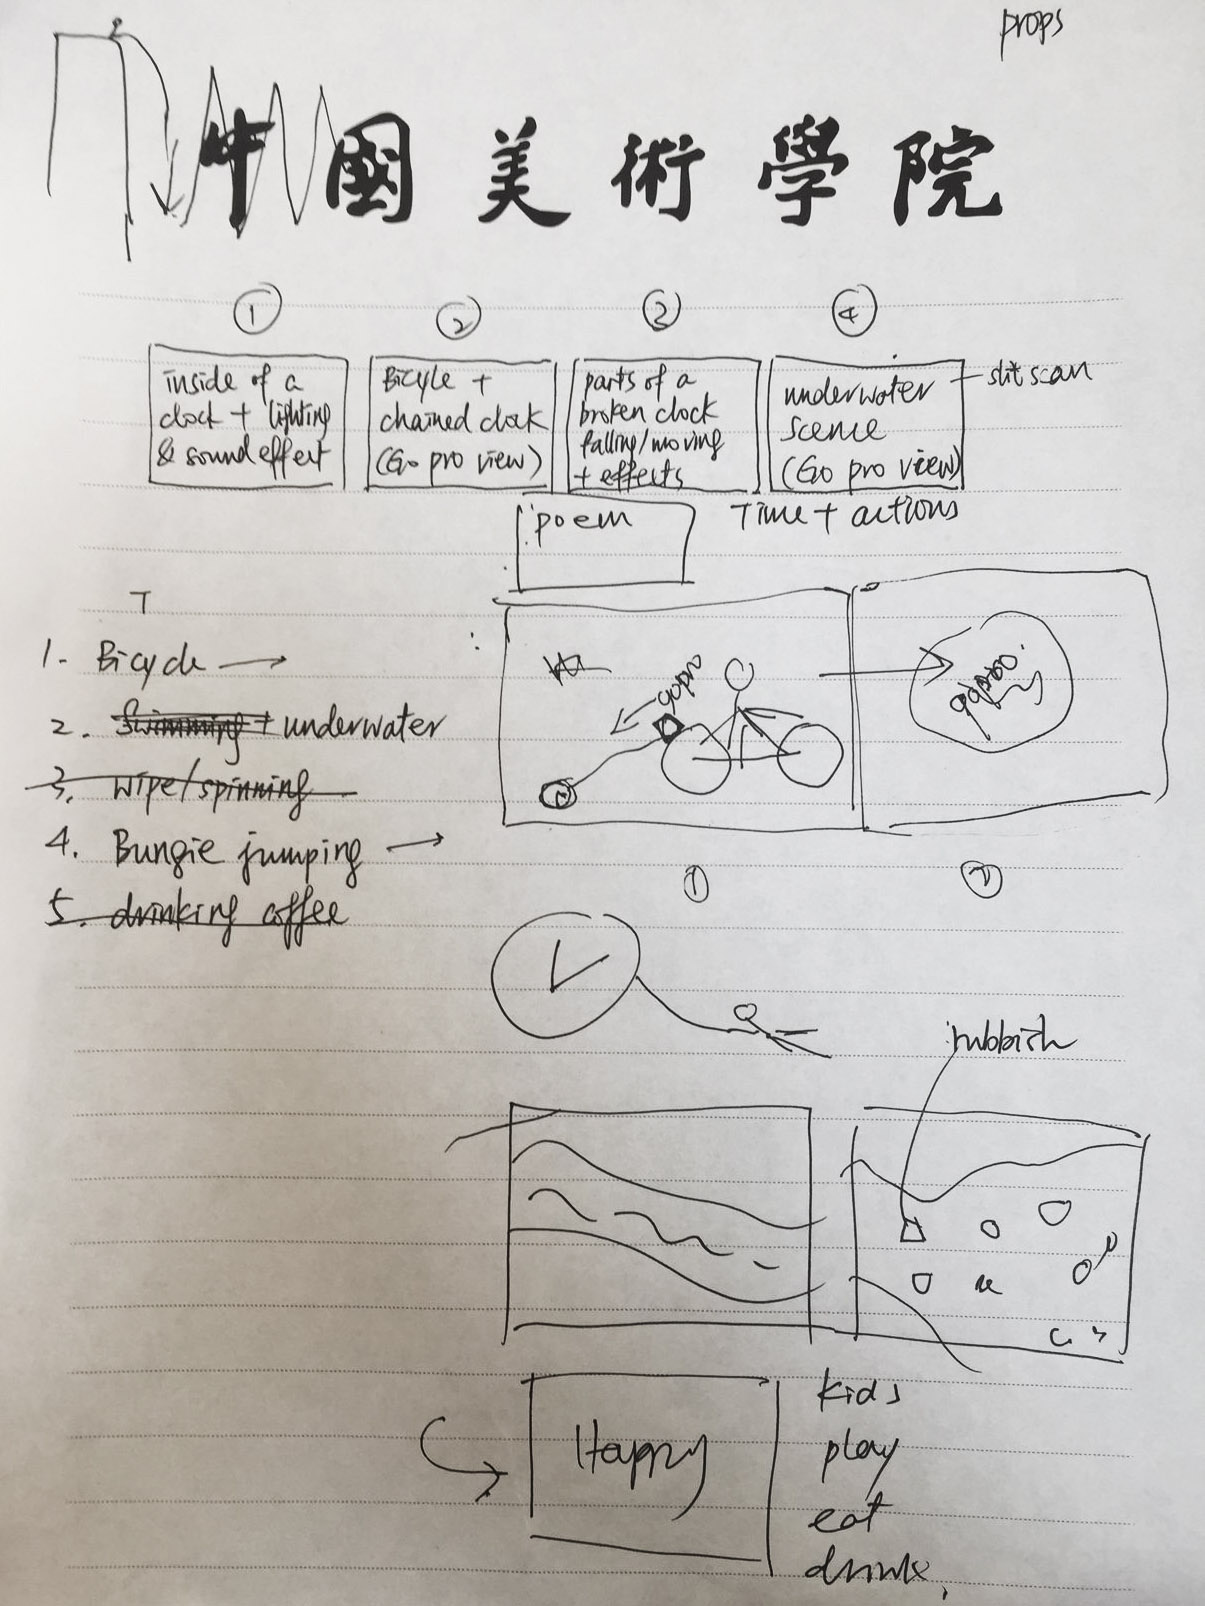 props
中國美術學院
① ② ③ ④
inside of a
clock + lighting
& sound effect
Bicycle +
chained clock
(Go pro view)
parts of a
broken clock
falling/moving
+ effects
underwater
scene
(Go pro view)
slit scan
poem
Time + actions
T
1. Bicycle →
2. swimming + underwater
3. wipe/spinning
4. Bungie jumping →
5. drinking coffee
gopro
① ②
rubbish
Happy
kids
play
eat
drink,